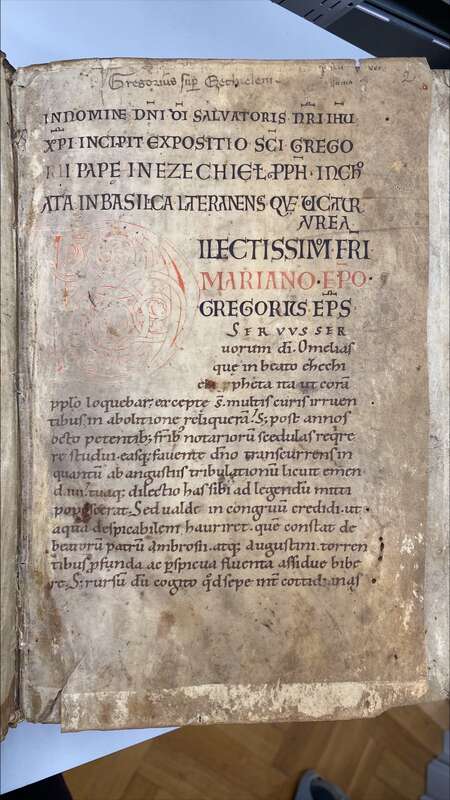 Gregorius sup Ezechielem
2
IN NOMINE DNI DI SALVATORIS NRI IHU
XPI INCIPIT EXPOSITIO SCI GREGO
RII PAPE IN EZECHIEL PPH. INCH
ATA IN BASILCA LATERANENS QUE UCATUR
AUREA
DILECTISSIMO FRI
MARIANO EPO
GREGORIUS EPS
SERVVS SER
uorum di. Omelias
que in beato ezechi
pheta ita ut corã
pplo loquebar, excepte s̃. multis curis irruen
tibus in abolitione reliquerã. S; post annos
octo petentib; frib; notariorũ scedulas reqre
re studui. easq; fauente dno transcurrens in
quantũ ab angustiis tribulationũ licuit emen
daui. tuaq; dilectio has sibi ad legendũ mitti
poposcerat. Sed ualde incongruũ credidi. ut
aquã despicabilem hauriret. que constat de
beatorũ patrũ ambrosii. atq; augustini. torren
tibus pfunda ac pspicua fluenta assidue bibe
re. S; rursũ dũ cogito qd sepe int cottidianas